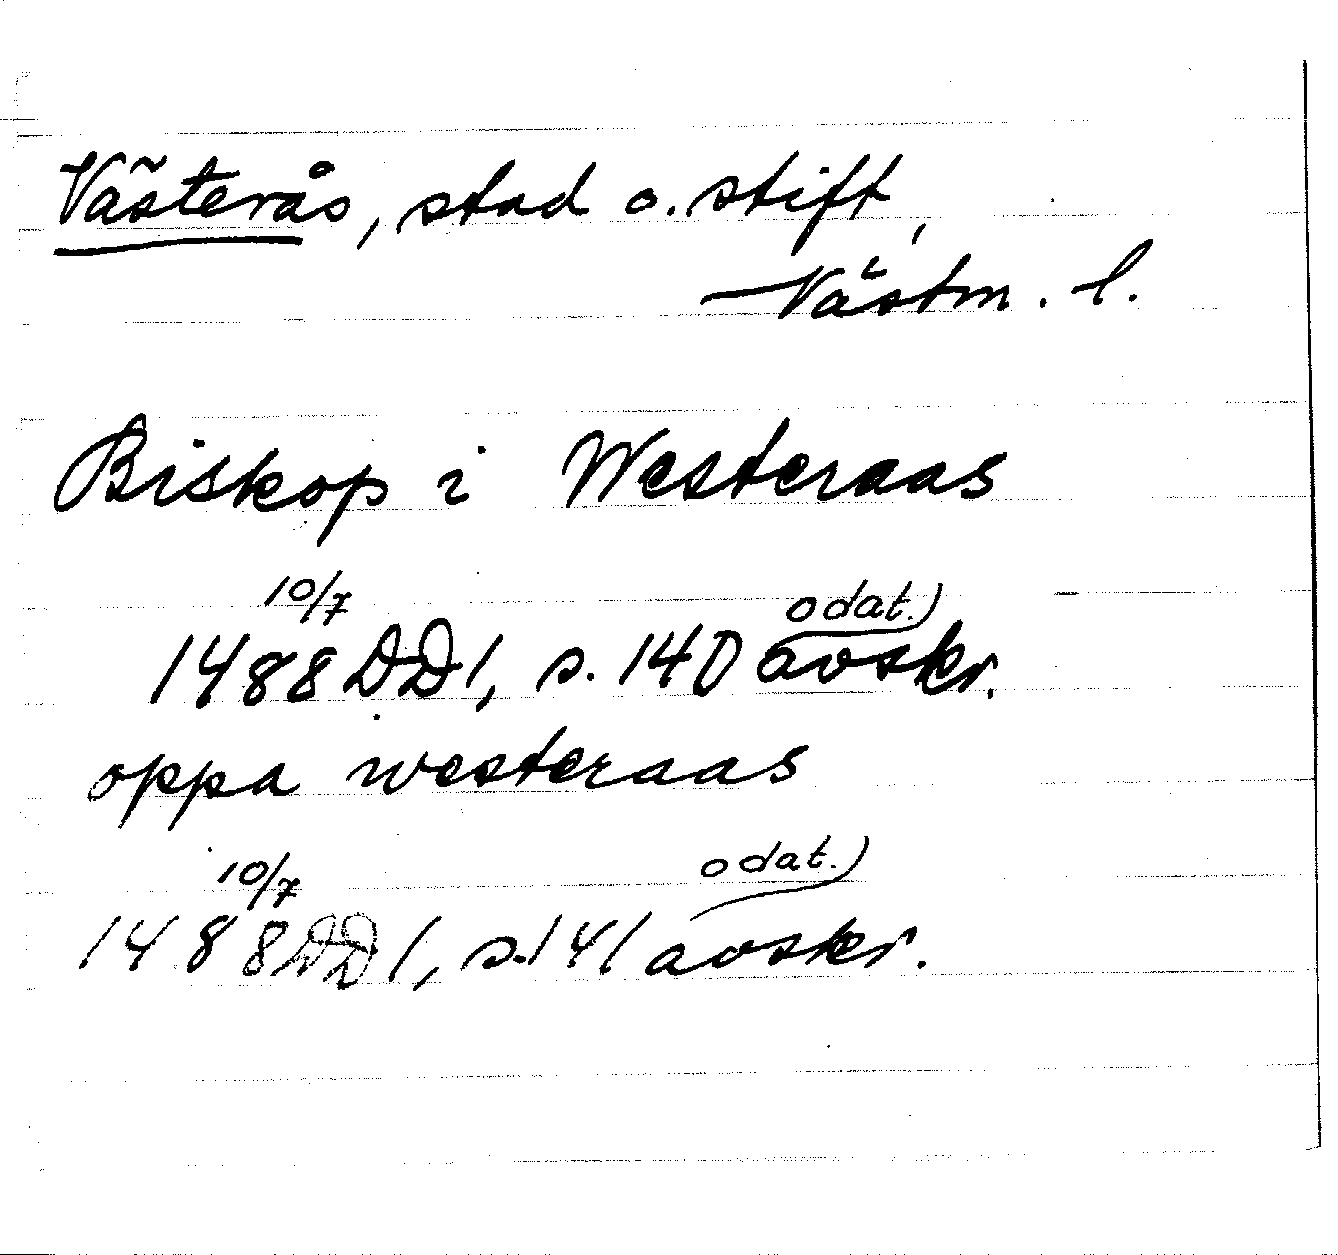 Västerås, stad o. stift,
Västm. l.
Biskop i Westeraas
10/7
odat.)
1488 DD1, s. 140 avskr.
oppa westeraas
10/7
odat.)
1488 DD1, s. 141 avskr.